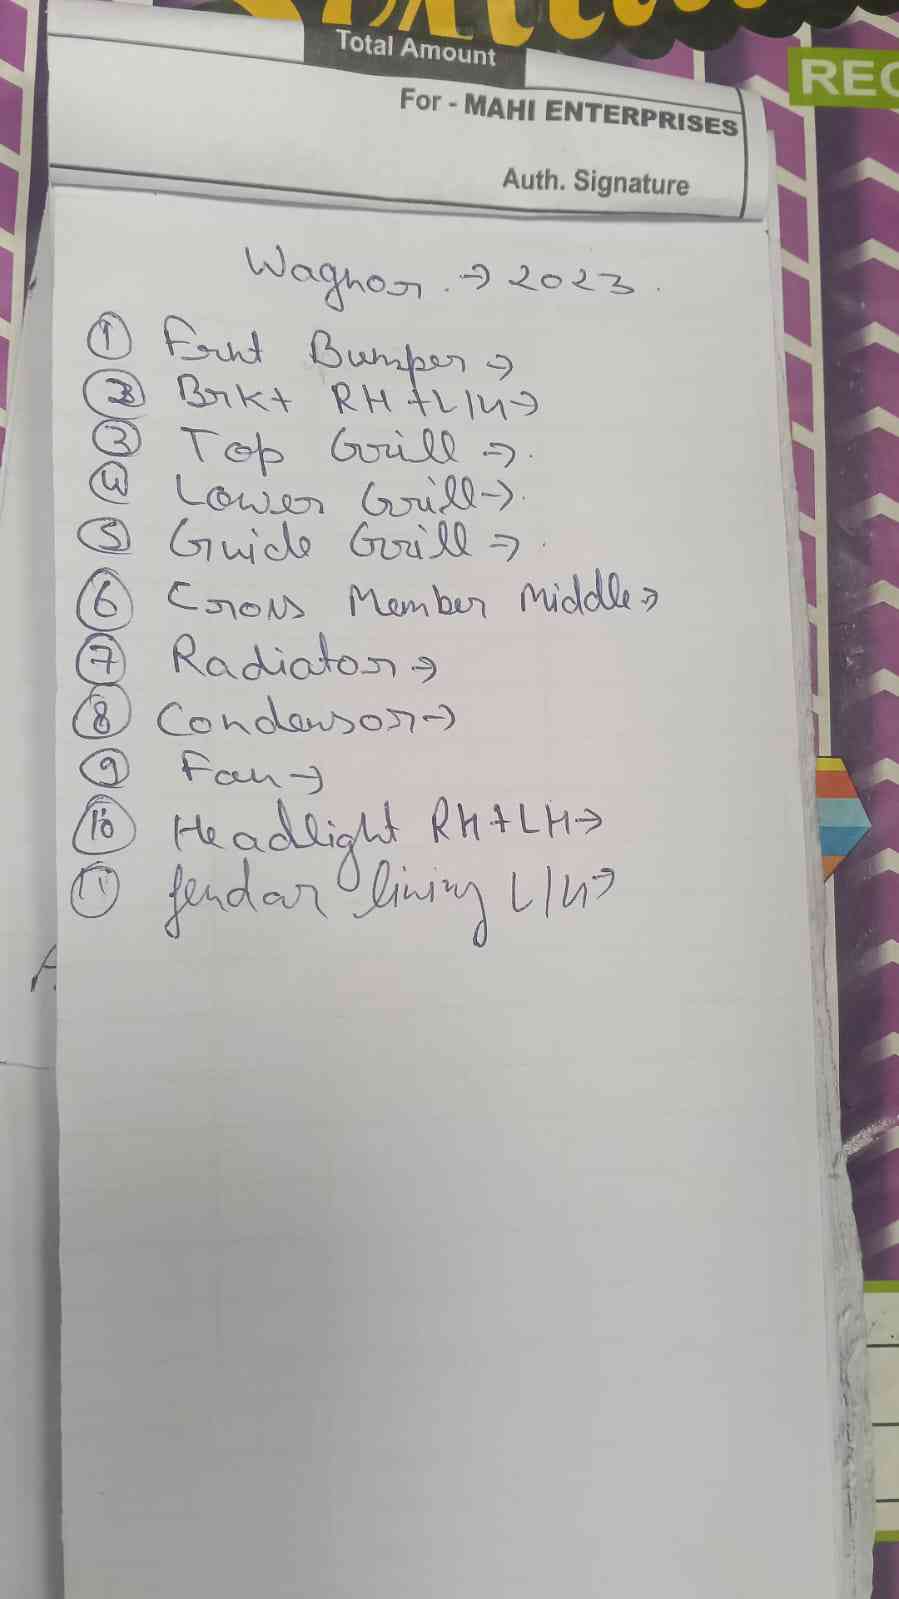 Total Amount
REC
For - MAHI ENTERPRISES
Auth. Signature
Wagnor. → 2023.
① Frnt Bumper →
② Brkt RH + L/H →
③ Top Grill →.
④ Lower Grill →.
⑤ Guide Grill →.
⑥ Cross Member Middle →
⑦ Radiator →
⑧ Condensor →
⑨ Fan →
⑩ Headlight RH + LH →
⑪ fendar lining L/H →